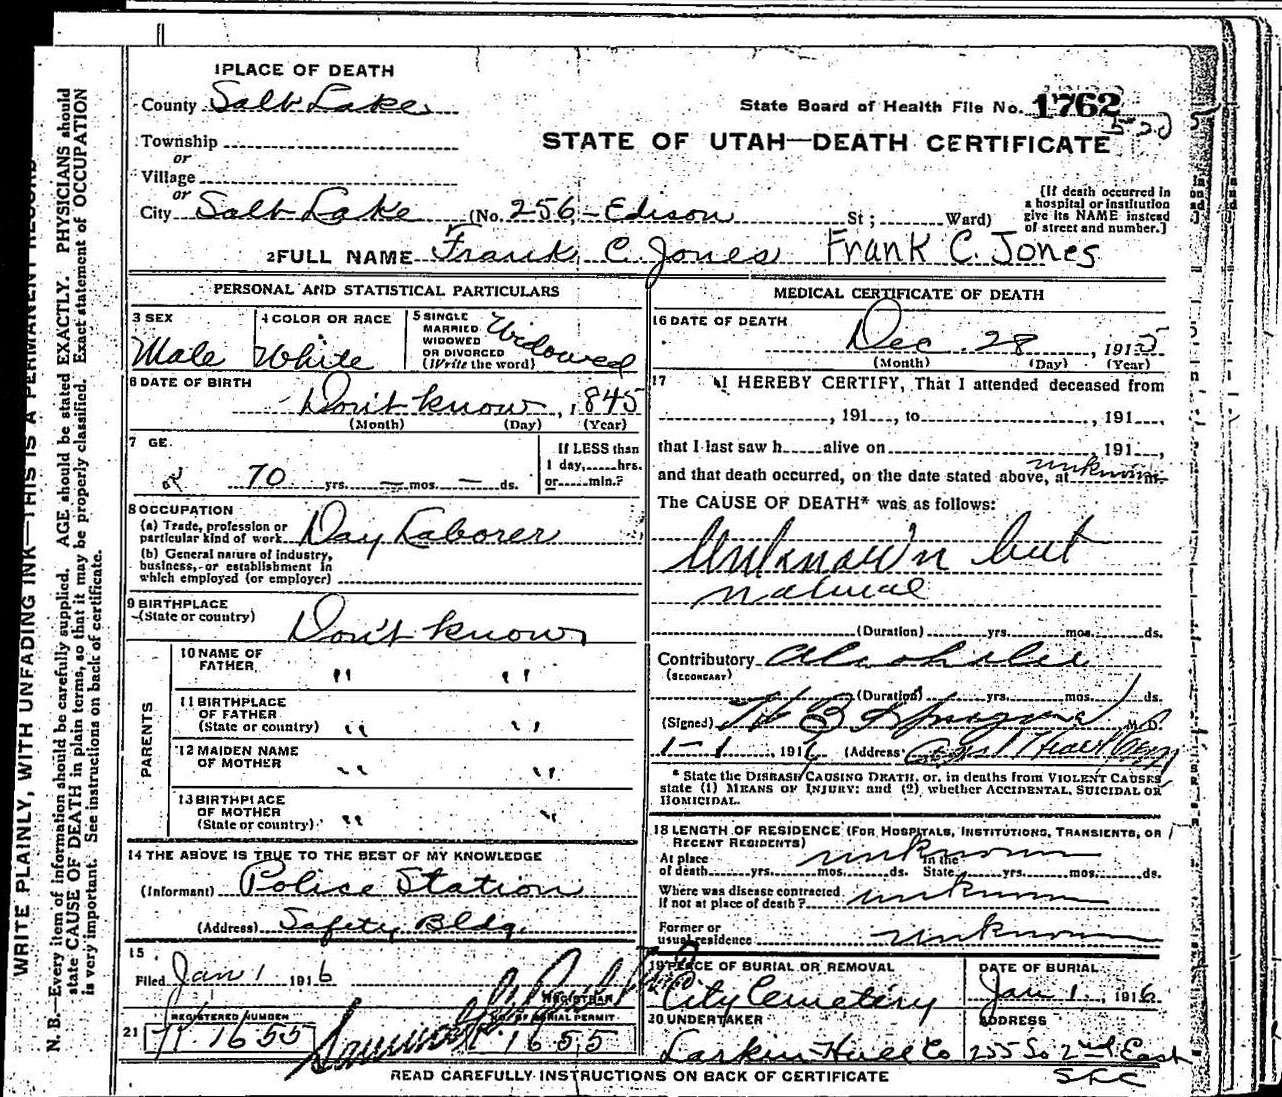 1 PLACE OF DEATH
County Salt Lake
State Board of Health File No. 1762
Township
or
Village
or
STATE OF UTAH—DEATH CERTIFICATE
City Salt Lake (No. 256 - Edison St ; Ward)
[If death occurred in
a hospital or institution
give its NAME instead
of street and number.]
2 FULL NAME Frank C. Jones Frank C. Jones
PERSONAL AND STATISTICAL PARTICULARS
3 SEX
Male
4 COLOR OR RACE
White
5 SINGLE
MARRIED
WIDOWED
OR DIVORCED
(Write the word)
Widowed
6 DATE OF BIRTH
Don't know, 1845
(Month) (Day) (Year)
7 GE
70 yrs. — mos. — ds.
If LESS than
1 day, hrs.
or min.?
8 OCCUPATION
(a) Trade, profession or
particular kind of work Day Laborer
(b) General nature of industry,
business, or establishment in
which employed (or employer)
9 BIRTHPLACE
(State or country)
Don't know
PARENTS
10 NAME OF
FATHER " "
11 BIRTHPLACE
OF FATHER
(State or country) " "
12 MAIDEN NAME
OF MOTHER " "
13 BIRTHPLACE
OF MOTHER
(State or country) " "
14 THE ABOVE IS TRUE TO THE BEST OF MY KNOWLEDGE
(Informant) Police Station
(Address) Safety Bldg.
15
Filed Jan 1 1916
REGISTRAR
REGISTERED NUMBER
21 1655
NO. OF BURIAL PERMIT
1655
MEDICAL CERTIFICATE OF DEATH
16 DATE OF DEATH
Dec. 28, 1915
(Month) (Day) (Year)
17 I HEREBY CERTIFY, That I attended deceased from
, 191 , to , 191 ,
that I last saw h alive on , 191 ,
and that death occurred, on the date stated above, at unknown m.
The CAUSE OF DEATH* was as follows:
Unknown but
natural
(Duration) yrs. mos. ds.
Contributory
(SECONDARY)
(Duration) yrs. mos. ds.
(Signed) M.D.
1-1, 1916 (Address)
* State the DISEASE CAUSING DEATH, or, in deaths from VIOLENT CAUSES,
state (1) MEANS OF INJURY; and (2) whether ACCIDENTAL, SUICIDAL OR
HOMICIDAL.
18 LENGTH OF RESIDENCE (FOR HOSPITALS, INSTITUTIONS, TRANSIENTS, OR
RECENT RESIDENTS)
At place In the
of death yrs. mos. ds. State yrs. mos. ds.
unknown
Where was disease contracted
if not at place of death? unknown
Former or
usual residence unknown
19 PLACE OF BURIAL OR REMOVAL
City Cemetery
DATE OF BURIAL
Jan 1, 1916
20 UNDERTAKER
Larkin Hull Co
ADDRESS
255 So 2nd East
SLC
READ CAREFULLY INSTRUCTIONS ON BACK OF CERTIFICATE
WRITE PLAINLY, WITH UNFADING INK—THIS IS A PERMANENT RECORD
N. B.—Every item of information should be carefully supplied. AGE should be stated EXACTLY. PHYSICIANS should
state CAUSE OF DEATH in plain terms, so that it may be properly classified. Exact statement of OCCUPATION
is very important. See instructions on back of certificate.